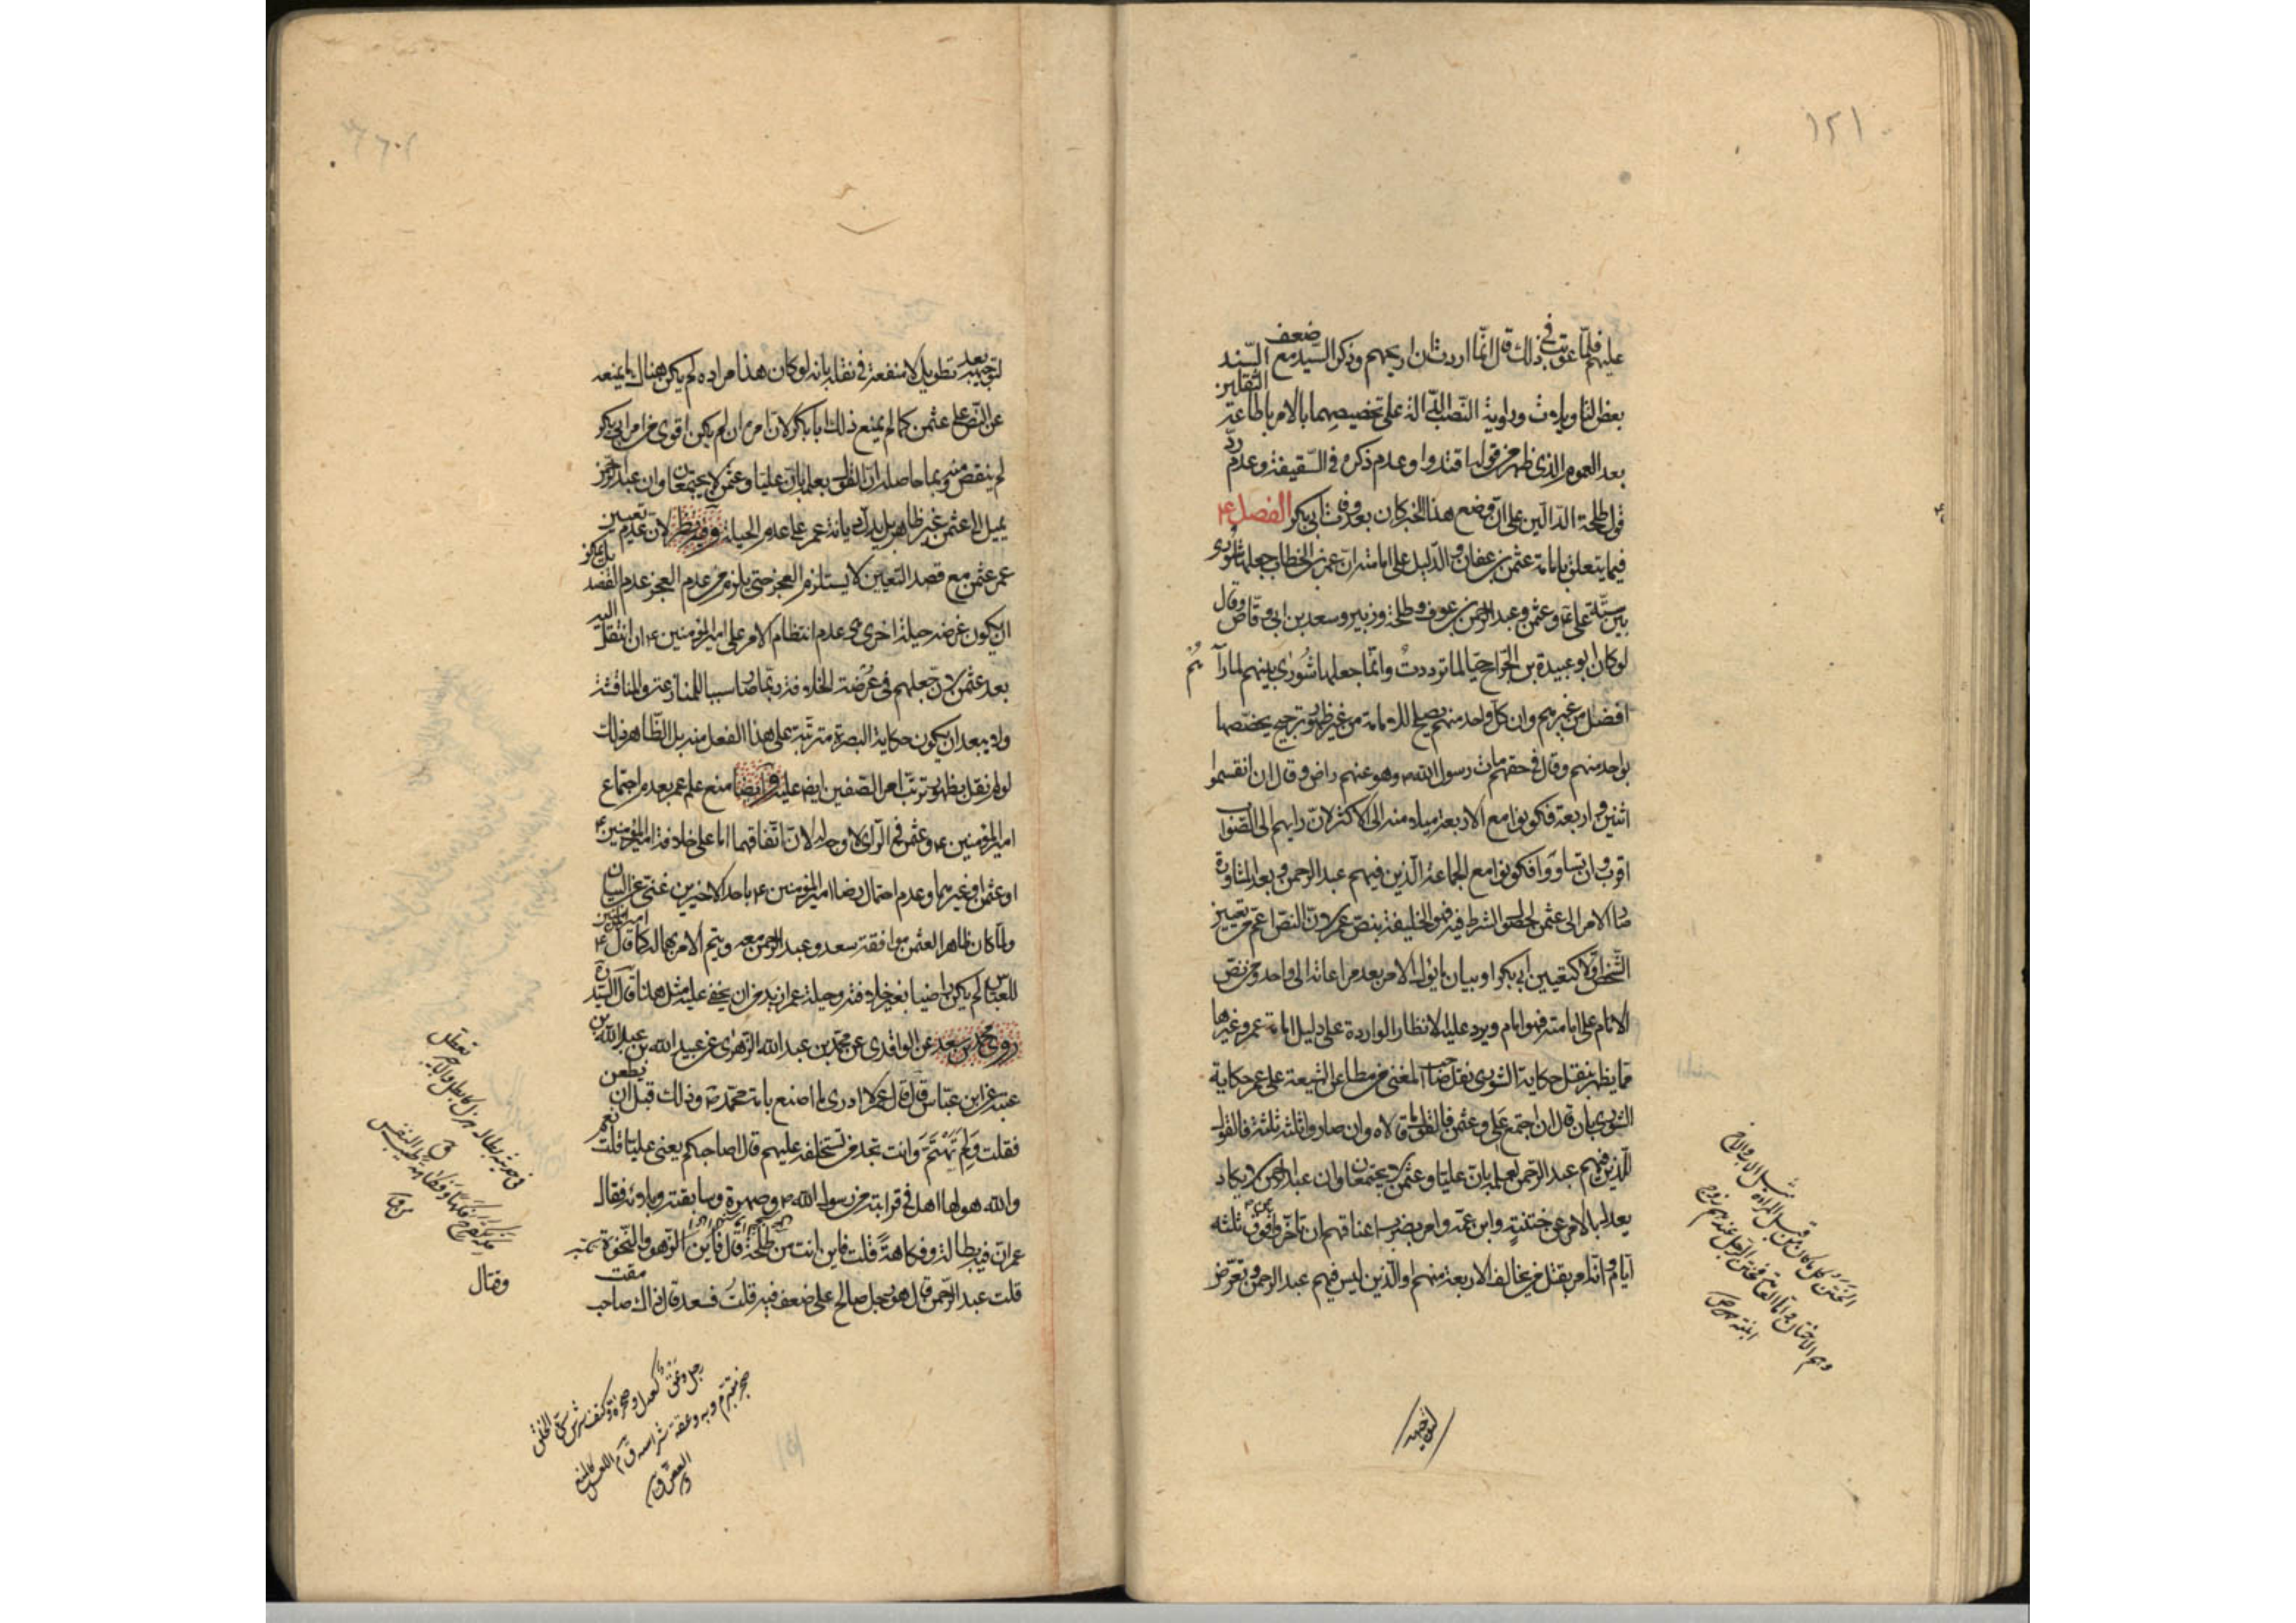 ١٢١
عليهم فلمّا عوتب في ذلك قال انّما اردت ان اريحهم وذكر السيد مع ضعف السّند
بعض التاويلات ورواية النّصب الدّالة على تخصيصهما بالامر باطاعة الثقلين
بعد العموم الذي ظهر من قوله اقتدوا وعدم ذكره في السّقيفة وعدم ردّ
قول طلحة الدّالين على انّ وضع هذا الخبر كان بعد وفات ابي بكر الفصل ٤
فيما يتعلق بامامة عثمن بن عفان والدّليل على امامته ان عمر بن الخطاب جعلها شورى
بين ستّة علي ع وعثمن وعبد الرحمن بن عوف وطلحة وزبير وسعد بن ابي وقاص وقال
لو كان ابو عبيدة بن الجراح حيّا لما تردّدتُ وانّما جعلها شورى بينهم لما رآهم
افضل من غيرهم وان كلّ واحد منهم يصلح للامامة من غير ظهور ترجيح يختصها
بواحد منهم وقال في حقهم مات رسول الله ص وهو عنهم راض وقال ان انقسموا
اثنين واربعة فكونوا مع الاربعة ميلا منه الى الاكثر لانّ رايهم الى الصّواب
اقرب وان تساووا فكونوا مع الجماعة الّذين فيهم عبد الرحمن وبعد المشاورة
صار الامر الى عثمن لحصول الشرط فيه فهو الخليفة بنصّ عمر لانّ النصّ اعمّ من تعيين
الشّخص اوّلا كتعيين ابي بكر او بيان ما يؤل الامر بعد مراعاته الى واحد ومن نصّ
الامام على امامته فهو امام ويرد عليه الانظار الواردة على دليل امامة عمر وغيرها
ممّا يظهر بنقل حكاية الشورى نقل صاحب المغني من مطاعن الشيعة على عمر حكاية
الشورى بان قال ان اجتمع علي وعثمن فالقول ما قالاه وان صاروا ثلثة ثلثة فالقول
للّذين فيهم عبد الرحمن لعلمه بانّ عليّا وعثمن لا يجتمعان وان عبد الرحمن لا يكاد
يعدل بالامر عن ختنه وابن عمّه وامر بضرب اعناقهم ان تاخّروا فوق ثلثة
ايّام وانّه امر بقتل من يخالف الاربعة منهم او الّذين ليس فيهم عبد الرحمن وتعرّض
لتوجيهه بعد تطويل لا منفعة في نقله بانه لو كان هذا مراده لم يكن هناك ما يمنعه
عن النّص على عثمن كما لم يمنع ذلك ابا بكر لانّ امره ان لم يكن اقوى من امر ابي بكر
لم ينقص منه وبما حاصله انّ القول بعلمه بانّ عليّا وعثمن لا يجتمعان وان عبد الرحمن
يميل الى عثمن غير ظاهر بل يدلّ ديانة عمر على عدم الحيلة وفيه نظر لان عدم تعيين
عمر عثمن مع قصد التعيين لا يستلزم العجز حتى يلزم من عدم العجز عدم القصد بل يجوز
ان يكون غرضه حيلة اخرى هي عدم انتظام الامر على امير المؤمنين ع ان انتقل اليه
بعد عثمن لانّ جعلهم في عُرْضة الخلافة ربّما صار سببا للمنازعة والمناقشة
ولا يبعد ان يكون حكاية البصرة مترتبة على هذا الفعل منه بل الظّاهر ذلك
لو لم نقل بظهور ترتّب امر الصّفين ايضا عليه وايضا منع علم عمر بعدم اجتماع
امير المؤمنين ع وعثمن في الرّاي لا وجه له لانّ اتّفاقهما امّا على خلافة امير المؤمنين ع
او عثمن او غيرهما وعدم احتمال رضا امير المؤمنين ع باحد الاخيرين غنيّ عن البيان
ولمّا كان ظاهرا لعثمن موافقة سعد وعبد الرحمن معه ويتم الامر بهما له كما قال امير المؤمنين ع
للعباس لم يكن راضيا بغير خلافته وحيلة عمر ازيد من ان يخفى عليه مثل هذا قال السّيد ره
روى محمد بن سعد عن الواقدي عن محمّد بن عبد الله الزّهري عن عبيد الله بن عبد الله بن
عتبة عن ابن عبّاس قال قال عمر لا ادري ما اصنع بامة محمّد ص وذلك قبل ان يطعن
فقلت ولم تهتمّ وانت تجد من تستخلفه عليهم قال اصاحبكم يعني عليّا قلت نعم
والله هو لها اهل في قرابته من رسول الله ص وصهره وسابقته وبلائه فقال
عمر انّ فيه بطالة وفكاهة قلت فاين انت من طلحة قال فاين الزّهو والنّخوة
قلت عبد الرّحمن قال هو رجل صالح على ضعف فيه قلتُ فسعد قال ذاك صاحب مقت
وقتال